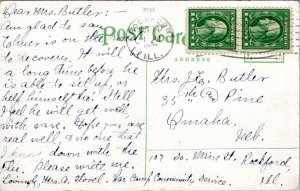 8762
Dear Mrs. Butler:-
Am glad to say
is on the
to recovery. It will be
a long time before he
is able to sit up, or
help himself
feel he will get well
with care. Hope you are
real well & no one that
I know down with the
Flu. Please write me.
Lovingly, Mrs. A. Stovel. War Camp Community Service.
ROCKFORD
ILL.
Post Card
ADDRESS
Mrs. J. C. Butler
35" Ave & Pine
Omaha
Neb.
107 So. Main St. Rockford
Ill.